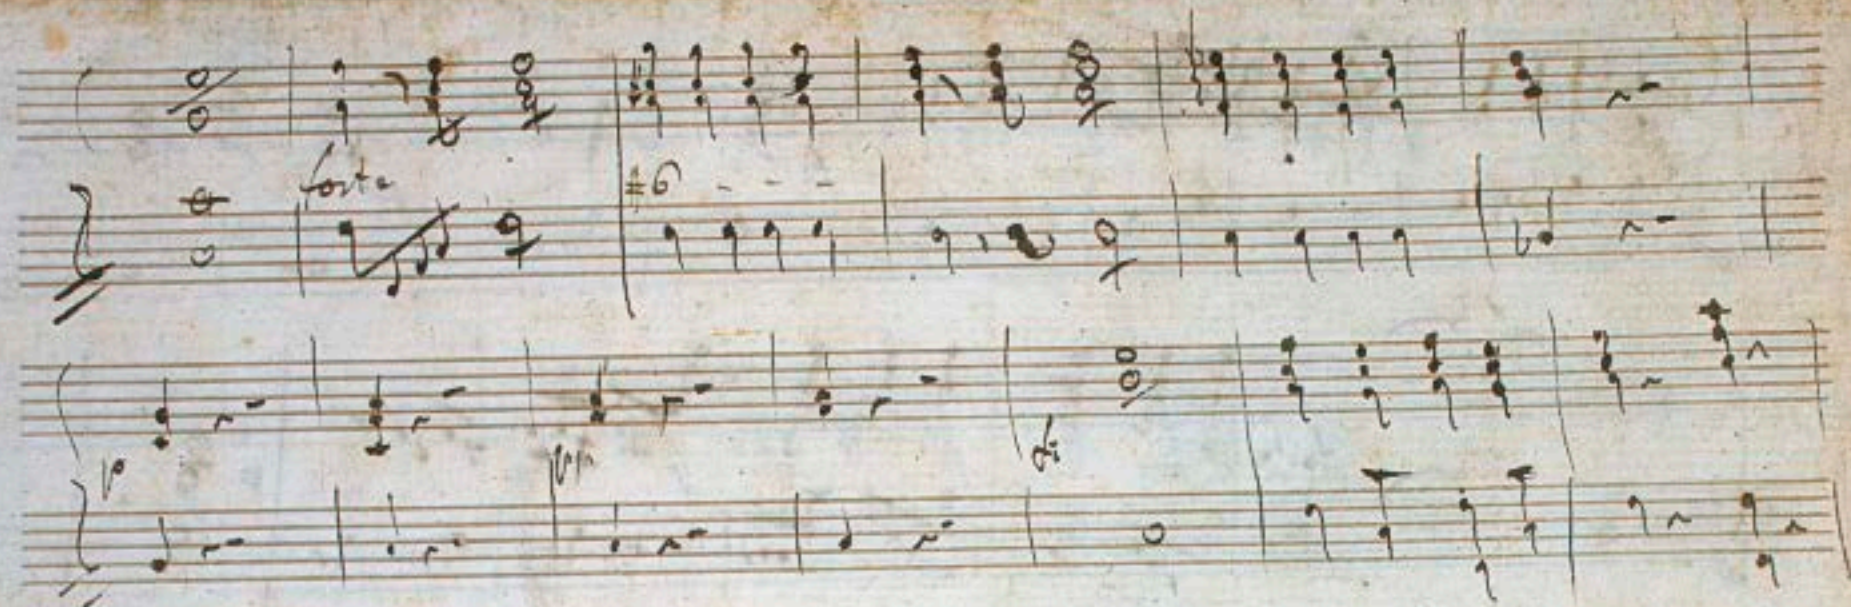 forte
#6 - - -
p
pp